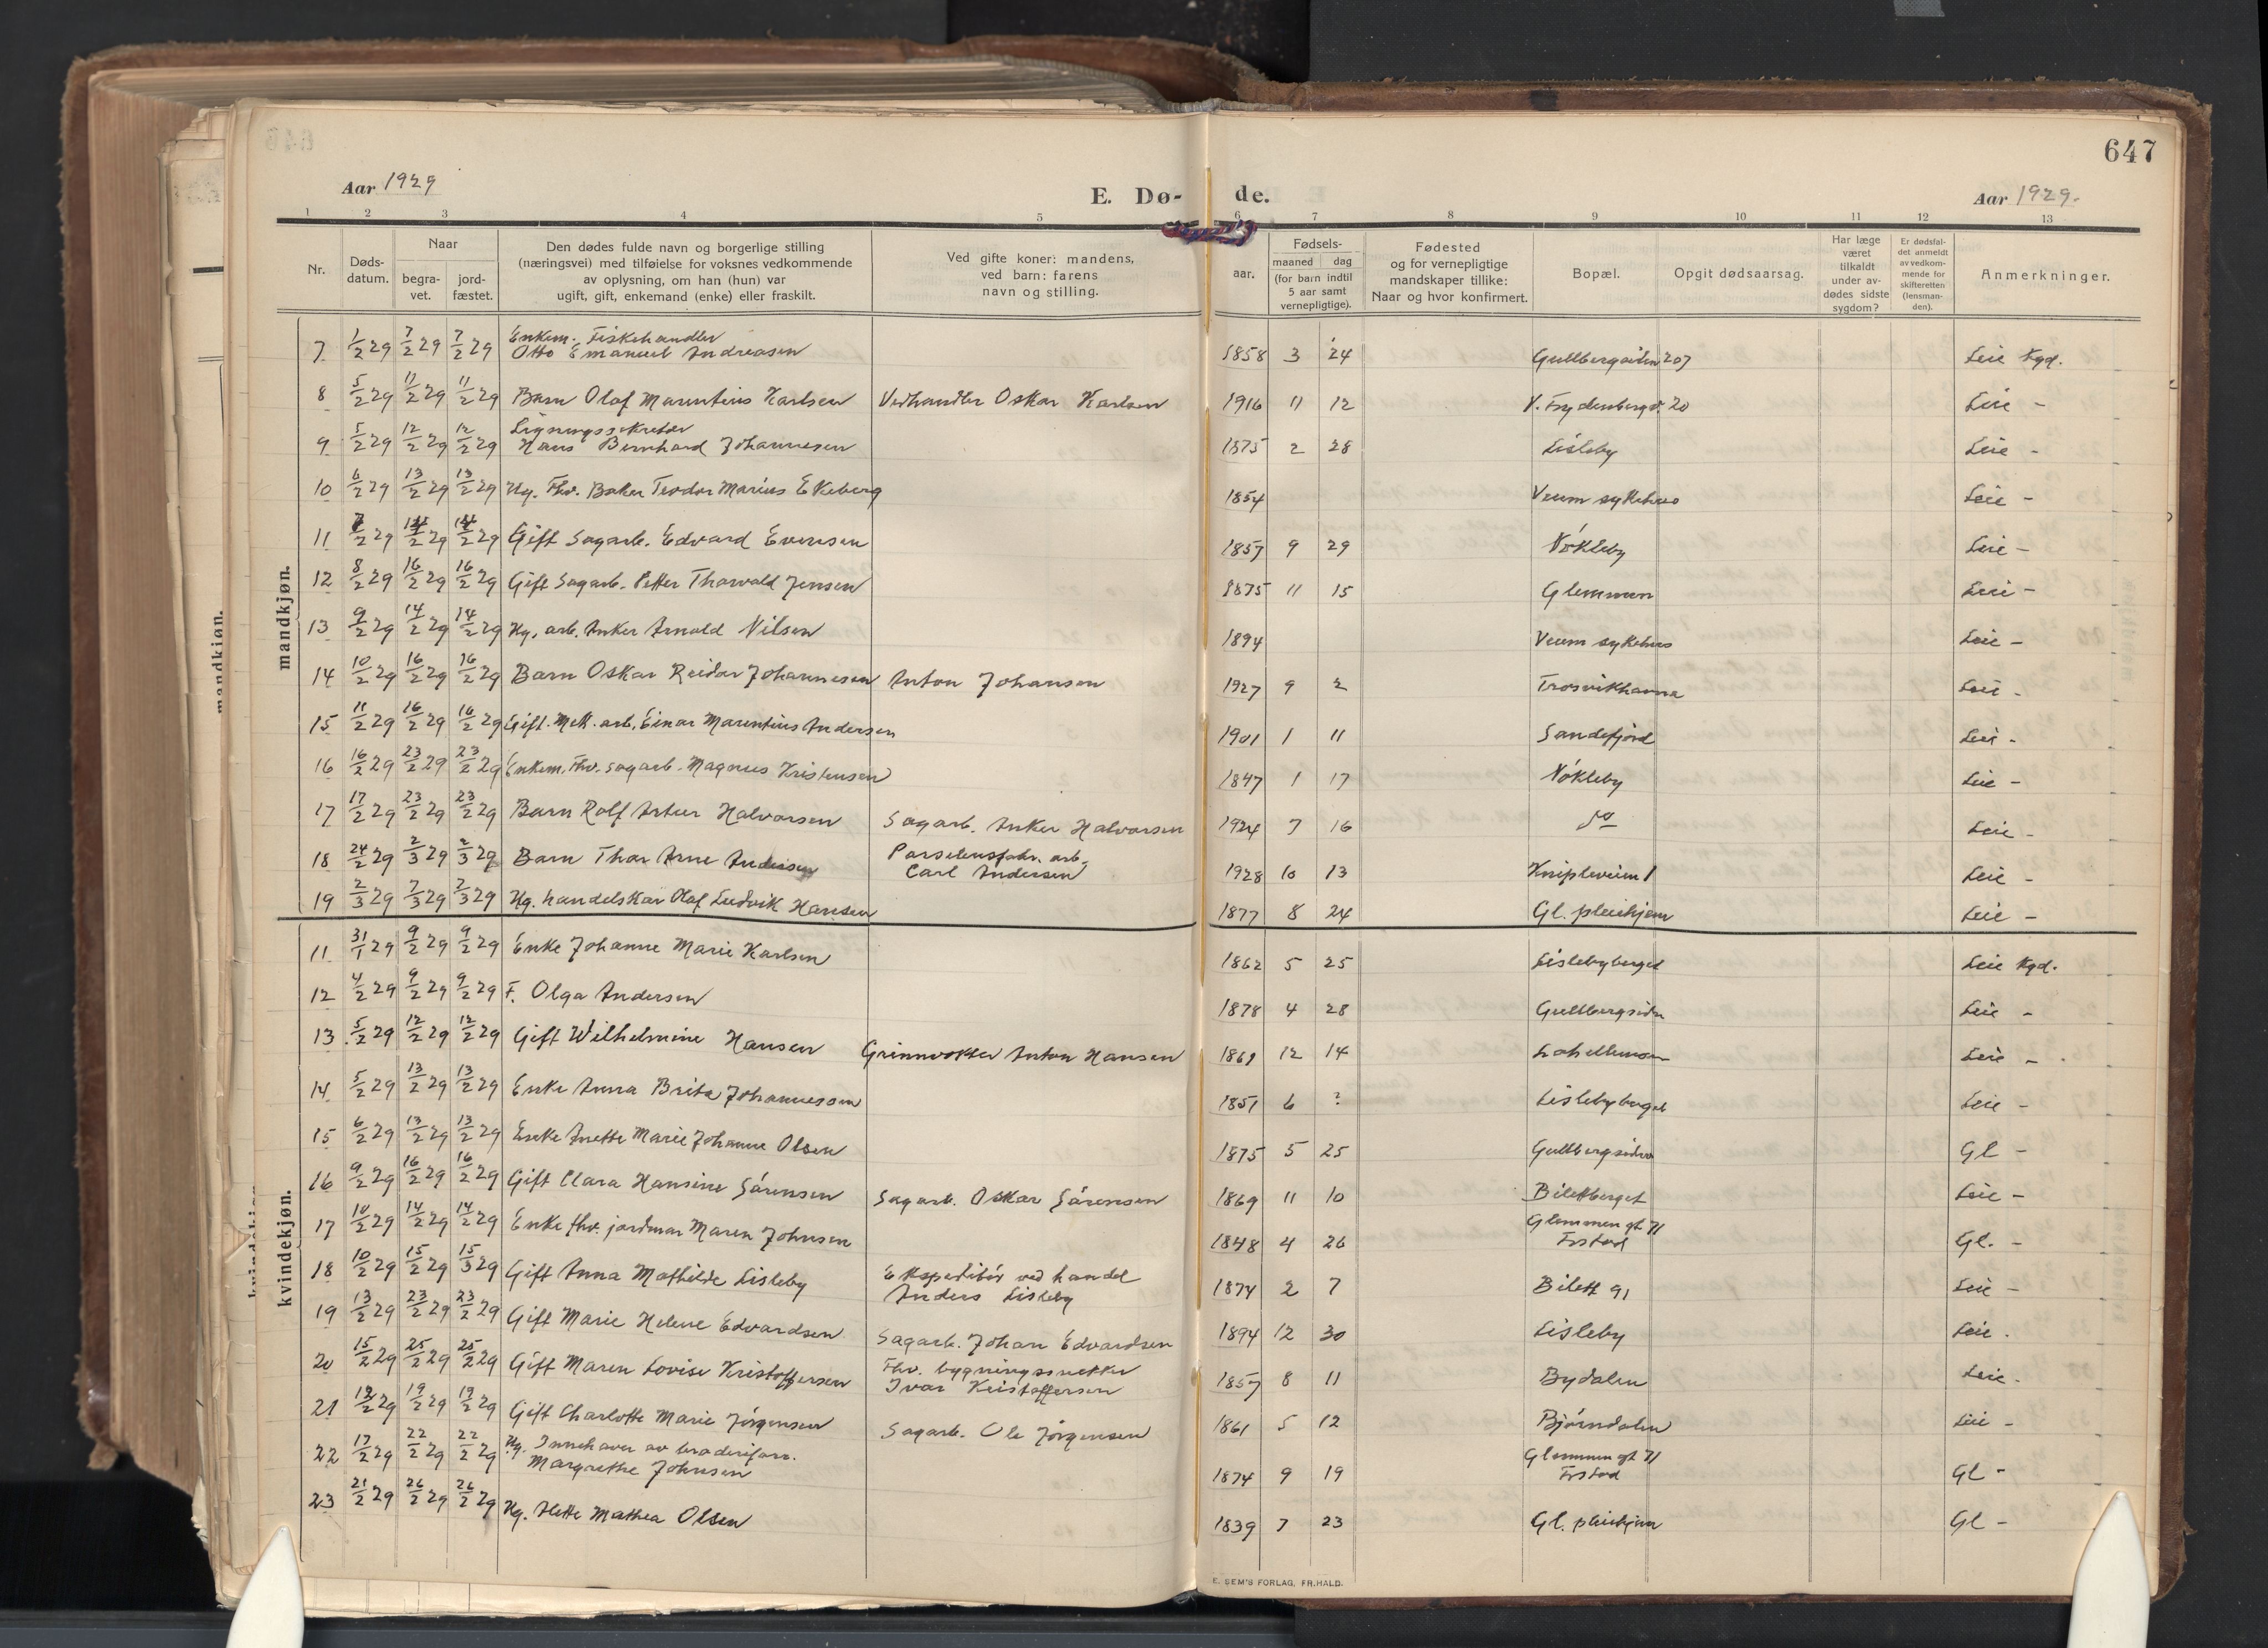 647
Aar 1929
E. Dø- de.
Aar 1929.
1 2 3 4 5 6 7 8 9 10 11 12 13
Nr.
Døds-
datum.
Naar
begra-
vet.
jord-
fæstet.
Den dødes fulde navn og borgerlige stilling
(næringsvei) med tilføielse for voksnes vedkommende
av oplysning, om han (hun) var
ugift, gift, enkemand (enke) eller fraskilt.
Ved gifte koner: mandens,
ved barn: farens
navn og stilling.
aar.
Fødsels-
maaned dag
(for barn indtil
5 aar samt
vernepligtige).
Fødested
og for vernepligtige
mandskaper tillike:
Naar og hvor konfirmert.
Bopæl.
Opgit dødsaarsag.
Har læge
været
tilkaldt
under av-
dødes sidste
sygdom?
Er dødsfal-
det anmeldt
av vedkom-
mende for
skifteretten
(lensman-
den).
Anmerkninger.
mandkjøn.
Enkem. Fiskehandler
7 1/2 29 7/2 29 7/2 29 Otto Emanuel Andreasen 1858 3 24 Gullbergsiden 207 Leie Kgd.
8 5/2 29 11/2 29 11/2 29 Barn Olaf Marentius Karlsen Vedhandler Oskar Karlsen 1916 11 12 V. Frydenbergv. 20 Leie -
Ligningssekretær
9 5/2 29 12/2 29 12/2 29 Hans Bernhard Johannesen 1875 2 28 Lisleby Leie -
10 6/2 29 13/2 29 13/2 29 Ug. Fhv. Baker Teodor Marius Ekeberg 1854 Veum sykehus Leie -
11 7/2 29 14/2 29 14/2 29 Gift Sagarb. Edvard Evensen 1857 9 29 Nøkleby Leie -
12 8/2 29 16/2 29 16/2 29 Gift Sagarb. Petter Thorvald Jensen 1875 11 15 Glemmen Leie -
13 9/2 29 14/2 29 14/2 29 Ug. arb. Anker Arnold Nilsen 1894 Veum sykehus Leie -
14 10/2 29 16/2 29 16/2 29 Barn Oskar Reidar Johannesen Anton Johansen 1927 9 2 Trosvikhavna Leie -
15 11/2 29 16/2 29 16/2 29 Gift. Mek. arb. Einar Marentius Andersen 1901 1 11 Sandefjord Leie -
16 16/2 29 23/2 29 23/2 29 Enkem. Fhv. sagarb. Magnus Kristensen 1847 1 17 Nøkleby Leie -
17 17/2 29 23/2 29 23/2 29 Barn Rolf Artur Halvorsen Sagarb. Anker Halvorsen 1924 7 16 do Leie -
18 24/2 29 2/3 29 2/3 29 Barn Thor Arne Andersen
Carl Andersen 1928 10 13 Knipleveien 1 Leie -
19 2/3 29 7/3 29 7/3 29 Ug. handelskar Olaf Ludvik Hansen 1877 8 24 Gl. pleiehjem Leie -
kvindekjøn.
11 31/1 29 9/2 29 9/2 29 Enke Johanne Marie Karlsen 1862 5 25 Lislebyberget Leie Kgd.
12 4/2 29 9/2 29 9/2 29 F. Olga Andersen 1878 4 28 Gullbergsiden Leie -
13 5/2 29 12/2 29 12/2 29 Gift Wilhelmine Hansen Grinnvokter Anton Hansen 1861 12 14 Leie -
14 5/2 29 13/2 29 13/2 29 Enke Anna Brita Johannessen 1851 6 ? Lislebyberget Leie -
15 6/2 29 13/2 29 13/2 29 Enke Anette Marie Johanne Olsen 1875 5 25 Gullbergsiden Gl -
16 9/2 29 16/2 29 16/2 29 Gift Clara Hansine Sørensen Sagarb. Oskar Sørensen 1869 11 10 Bilettberget Leie -
17 10/2 29 14/2 29 14/2 29 Enke fhv. jordmor Maren Johnsen 1848 4 26 Glemmen gt 71
Frstad Gl. -
18 10/2 29 15/2 29 15/3 29 Gift Anna Mathilde Lisleby Ekspeditør ved handel
Anders Lisleby 1874 2 7 Bilett 91 Leie -
19 13/2 29 23/2 29 23/2 29 Gift Marie Helene Edvardsen Sagarb. Johan Edvardsen 1894 12 30 Lisleby Leie.
20 15/2 29 25/2 29 25/2 29 Gift Maren Lovise Kristoffersen Fhv. bygningssnekker
Ivar Kristoffersen 1857 8 11 Bydalen Leie.
21 12/2 29 19/2 29 19/2 29 Gift Charlotte Marie Jørgensen Sagarb. Ole Jørgensen 1861 5 12 Bjørndalen Leie -
22 17/2 29 22/2 29 22/2 29 Ug. Innehaver av broderiforr.
Margrethe Johnsen 1874 9 19 Glemmen gt 71
Frstad Gl -
23 21/2 29 26/2 29 26/2 29 Ug. Alette Mathea Olsen 1839 7 23 Gl. pleiehjem Gl -
E. SEM'S FORLAG, FR.HALD.